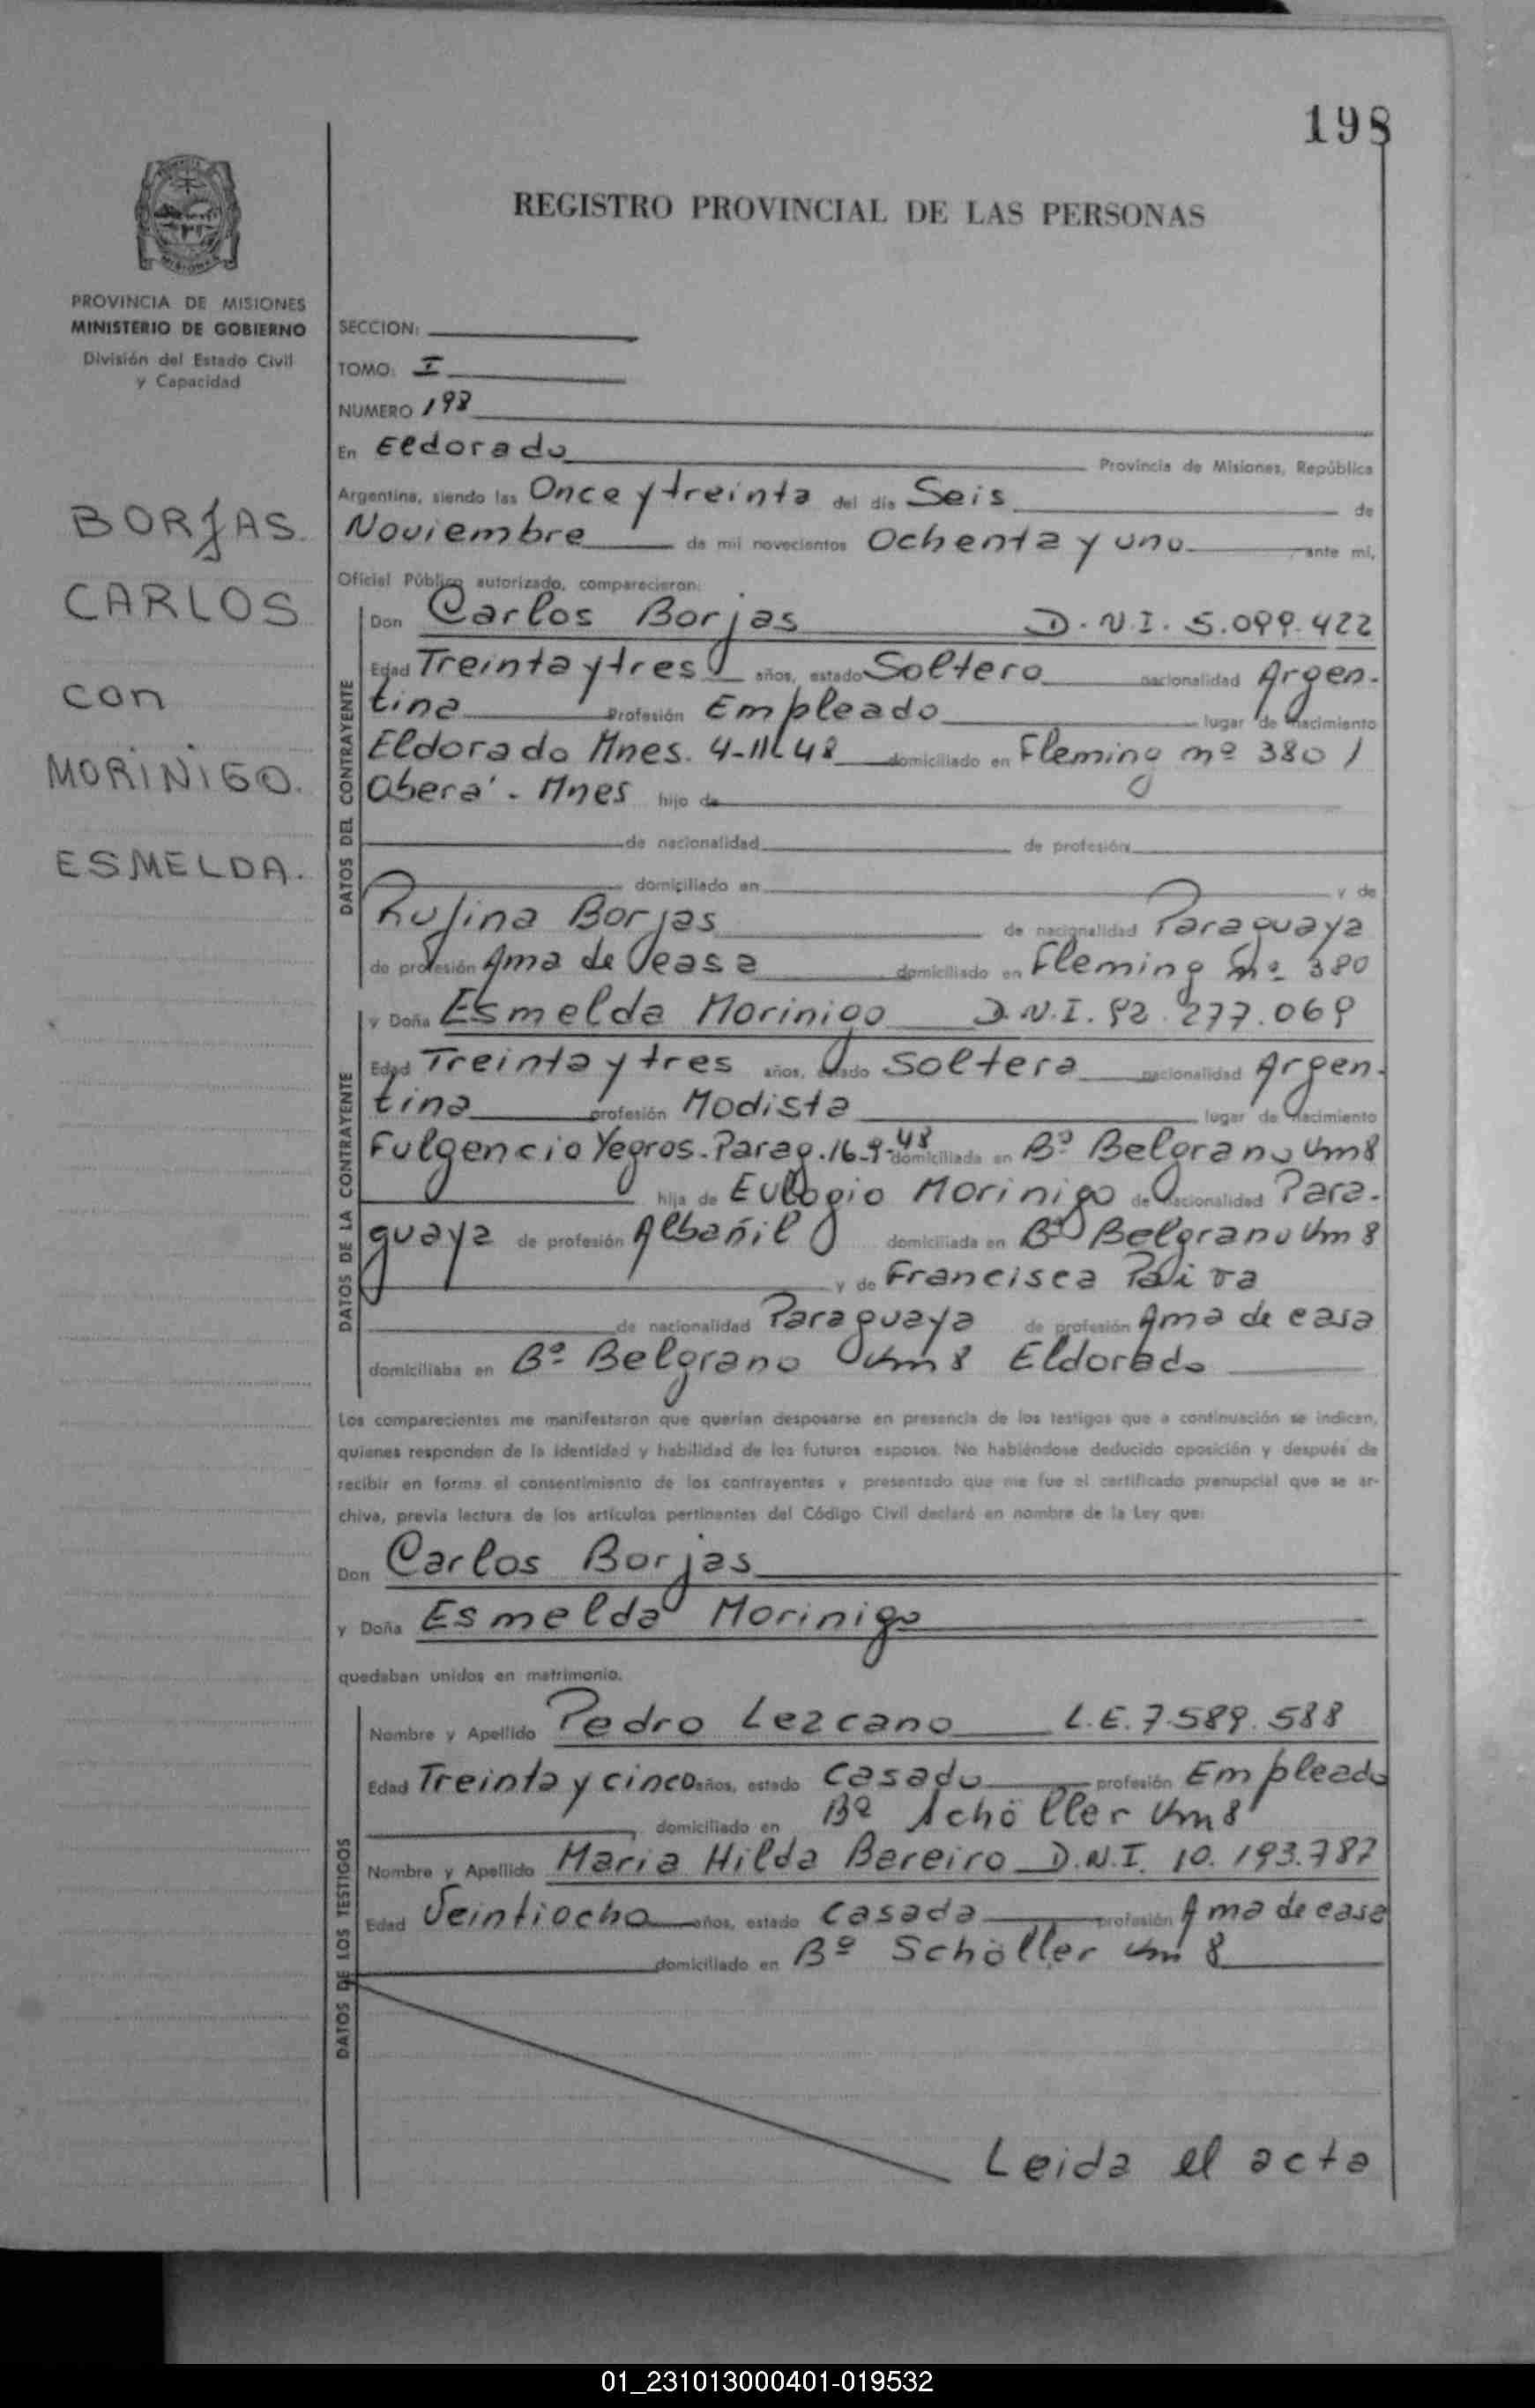 198
REGISTRO PROVINCIAL DE LAS PERSONAS
MISIONES
PROVINCIA DE MISIONES
MINISTERIO DE GOBIERNO
División del Estado Civil
y Capacidad
BORJAS
CARLOS
con
MORINIGO.
ESMELDA.
SECCION:
TOMO: I
NUMERO 198
En Eldorado Provincia de Misiones, República
Argentina, siendo las Once y treinta del día Seis de
Noviembre de mil novecientos Ochenta y uno ante mi,
Oficial Público autorizado, comparecieron:
DATOS DEL CONTRAYENTE
Don Carlos Borjas D.N.I. 5.099.422
Edad Treinta y tres años, estado Soltero nacionalidad Argen-
tina Profesión Empleado lugar de nacimiento
Eldorado Mnes. 4-11-48 domiciliado en Fleming nº 380 /
Oberá - Mnes hijo de
de nacionalidad de profesión
domiciliado en y de
Rufina Borjas de nacionalidad Paraguaya
de profesión Ama de casa domiciliado en Fleming nº 380
DATOS DE LA CONTRAYENTE
y Doña Esmelda Morinigo D.N.I. 92.277.069
Edad Treinta y tres años, estado Soltera nacionalidad Argen-
tina profesión Modista lugar de nacimiento
Fulgencio Yegros-Parag.16-9-48 domiciliada en Bº Belgrano Km8
hija de Eulogio Morinigo de nacionalidad Para-
guaya de profesión Albañil domiciliada en Bº Belgrano Km 8
y de Francisca
de nacionalidad Paraguaya de profesión Ama de casa
domiciliaba en Bº Belgrano Km 8 Eldorado
Los comparecientes me manifestaron que querían desposarse en presencia de los testigos que a continuación se indican,
quienes responden de la identidad y habilidad de los futuros esposos. No habiéndose deducido oposición y después de
recibir en forma el consentimiento de los contrayentes y presentado que me fue el certificado prenupcial que se ar-
chiva, previa lectura de los artículos pertinentes del Código Civil declaré en nombre de la Ley que:
Don Carlos Borjas
y Doña Esmelda Morinigo
quedaban unidos en matrimonio.
DATOS DE LOS TESTIGOS
Nombre y Apellido Pedro Lezcano L.E. 7.589.588
Edad Treinta y cinco años, estado Casado profesión Empleado
domiciliado en Bº Schöller Km 8
Nombre y Apellido Maria Hilda Bareiro D.N.I. 10.193.787
Edad Veintiocho años, estado Casada profesión Ama de casa
domiciliado en Bº Schöller Km 8
Leida el acta
01_231013000401-019532